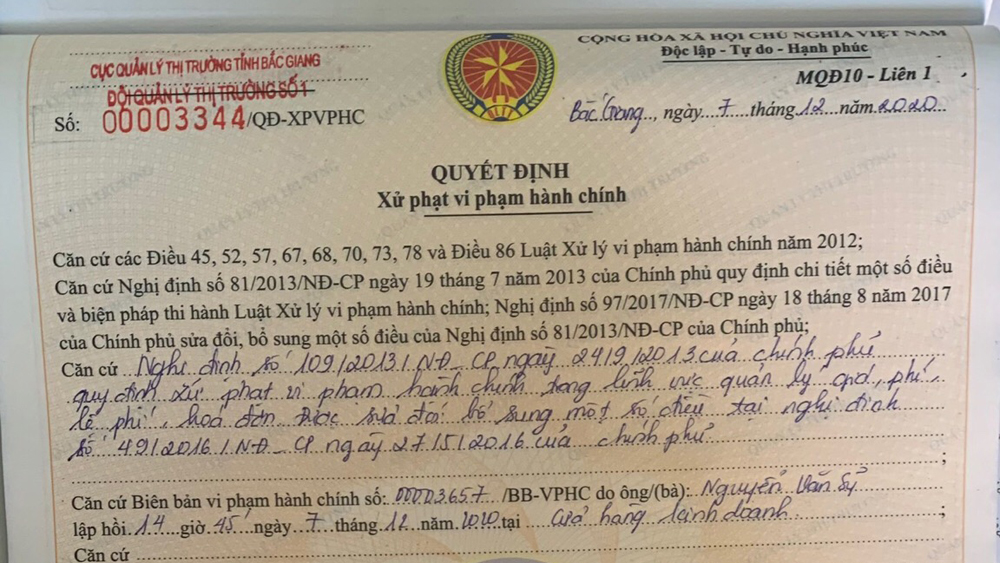 CỤC QUẢN LÝ THỊ TRƯỜNG TỈNH BẮC GIANG
ĐỘI QUẢN LÝ THỊ TRƯỜNG SỐ 1
Số: 00003344/QĐ-XPVPHC
CỘNG HÒA XÃ HỘI CHỦ NGHĨA VIỆT NAM
Độc lập - Tự do - Hạnh phúc
MQĐ10 - Liên 1
Bắc Giang, ngày 7 tháng 12 năm 2020
QUYẾT ĐỊNH
Xử phạt vi phạm hành chính
Căn cứ các Điều 45, 52, 57, 67, 68, 70, 73, 78 và Điều 86 Luật Xử lý vi phạm hành chính năm 2012;
Căn cứ Nghị định số 81/2013/NĐ-CP ngày 19 tháng 7 năm 2013 của Chính phủ quy định chi tiết một số điều
và biện pháp thi hành Luật Xử lý vi phạm hành chính; Nghị định số 97/2017/NĐ-CP ngày 18 tháng 8 năm 2017
của Chính phủ sửa đổi, bổ sung một số điều của Nghị định số 81/2013/NĐ-CP của Chính phủ;
Căn cứ Nghị định số 109/2013/NĐ-CP ngày 24/9/2013 của chính phủ
quy định xử phạt vi phạm hành chính trong lĩnh vực quản lý giá, phí,
lệ phí, hoá đơn được sửa đổi bổ sung một số điều tại nghị định
số 49/2016/NĐ-CP ngày 27/5/2016 của chính phủ
;
Căn cứ Biên bản vi phạm hành chính số: 00003657 /BB-VPHC do ông/(bà): Nguyễn Văn Sỹ
lập hồi 14 giờ 45 ngày 7 tháng 12 năm 2020 tại cửa hàng kinh doanh ;
Căn cứ